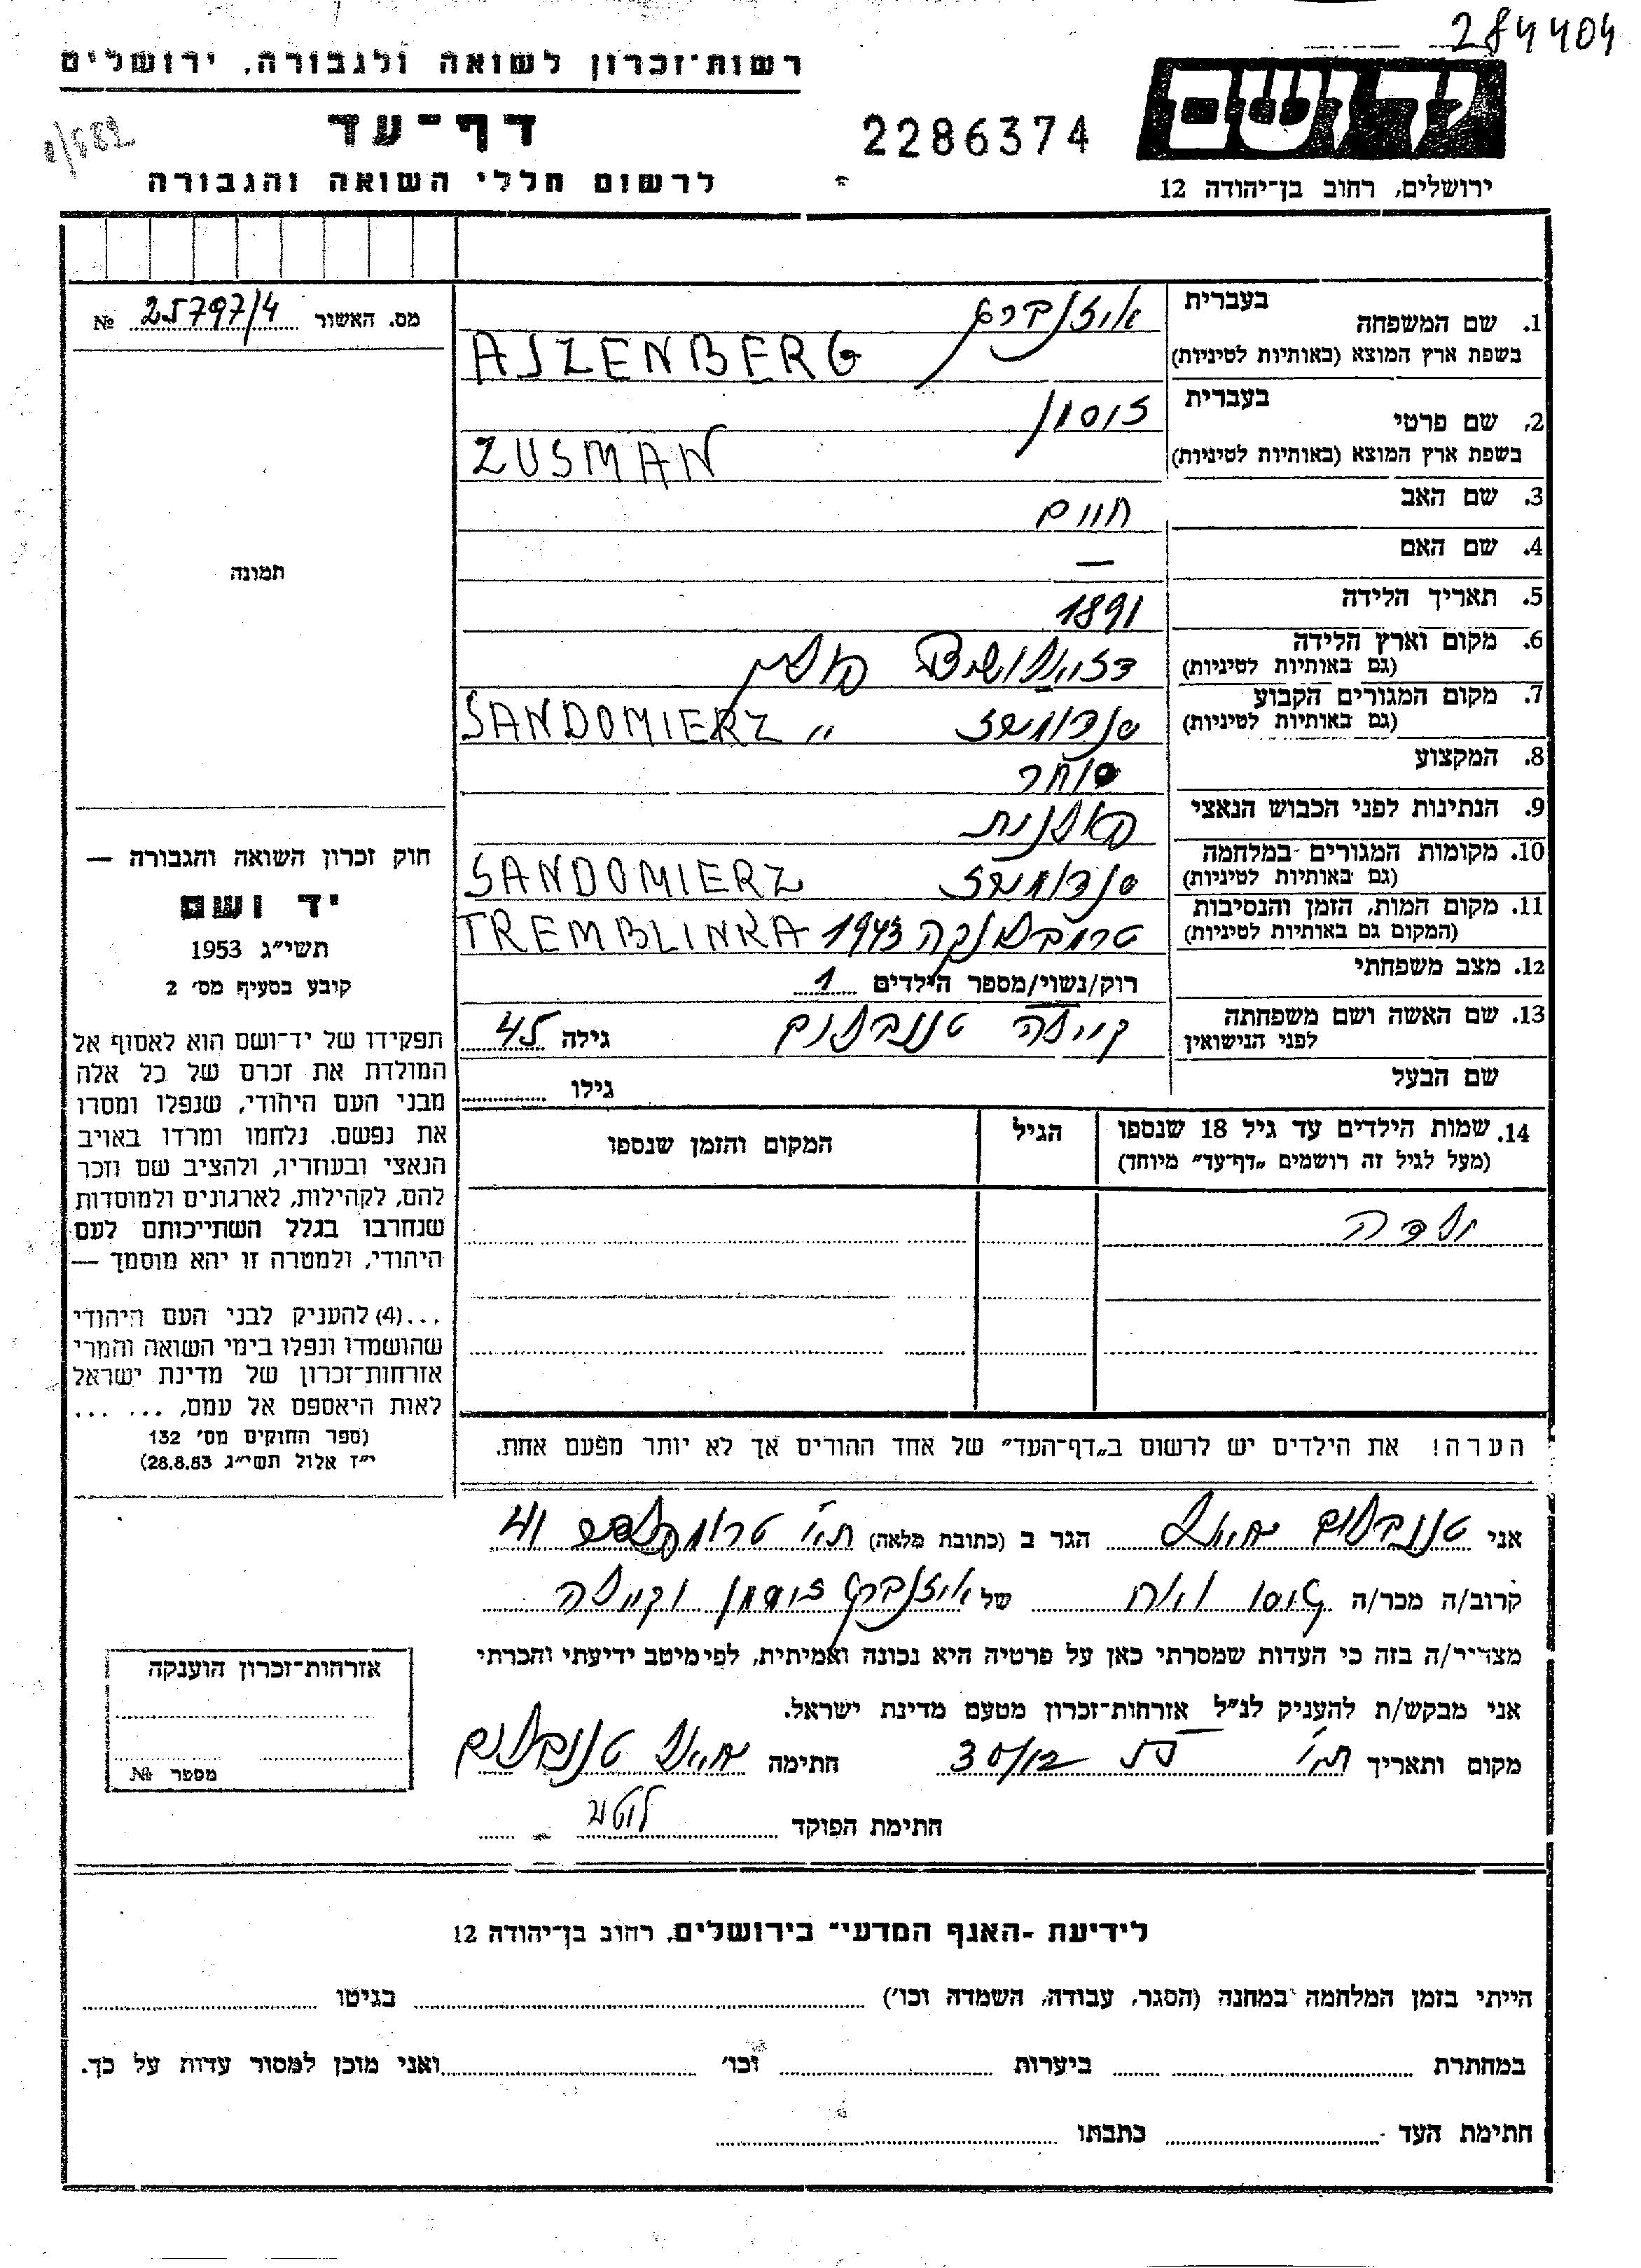 284404
רשות־זכרון לשואה ולגבורה, ירושלים
יד ושם
דף־עד
2286374
לרשום חללי השואה והגבורה
ירושלים, רחוב בן־יהודה 12
מס. האשור 25797/4 №
1. שם המשפחה בעברית איזנברג
בשפת ארץ המוצא (באותיות לטיניות) AJZENBERG
2. שם פרטי בעברית זוסמן
בשפת ארץ המוצא (באותיות לטיניות) ZUSMAN
3. שם האב חיים
4. שם האם —
5. תאריך הלידה 1891
6. מקום וארץ הלידה פולין
(גם באותיות לטיניות)
7. מקום המגורים הקבוע סנדומיז " SANDOMIERZ
(גם באותיות לטיניות)
8. המקצוע סוחר
9. הנתינות לפני הכבוש הנאצי פולנית
10. מקומות המגורים במלחמה סנדומיז SANDOMIERZ
(גם באותיות לטיניות)
11. מקום המות, הזמן והנסיבות טרמבלינקה 1943 TREMBLINKA
(המקום גם באותיות לטיניות)
12. מצב משפחתי רוק/נשוי/מספר הילדים 1
13. שם האשה ושם משפחתה קיילה טננבלום גילה 45
לפני הנישואין
שם הבעל גילו
14. שמות הילדים עד גיל 18 שנספו הגיל המקום והזמן שנספו
(מעל לגיל זה רושמים „דף־עד" מיוחד)
ילדה
הערה! את הילדים יש לרשום ב„דף־העד" של אחד ההורים אך לא יותר מפעם אחת.
תמונה
חוק זכרון השואה והגבורה —
יד ושם
תשי"ג 1953
קובע בסעיף מס' 2
תפקידו של יד־ושם הוא לאסוף אל
המולדת את זכרם של כל אלה
מבני העם היהודי, שנפלו ומסרו
את נפשם, נלחמו ומרדו באויב
הנאצי ובעוזריו, ולהציב שם וזכר
להם, לקהילות, לארגונים ולמוסדות
שנחרבו בגלל השתייכותם לעם
היהודי, ולמטרה זו יהא מוסמך —
...(4) להעניק לבני העם היהודי
שהושמדו ונפלו בימי השואה והמרי
אזרחות־זכרון של מדינת ישראל
לאות היאספם אל עמם, ... ...
(ספר החוקים מס' 132
י"ז אלול תשי"ג 28.8.53)
אני טננבלום הגר ב (כתובת מלאה) ת"א 41
קרוב/ה מכר/ה גיסו של איזנברג זוסמן וקיילה
מצהיר/ה בזה כי העדות שמסרתי כאן על פרטיה היא נכונה ואמיתית, לפי מיטב ידיעתי והכרתי
אני מבקש/ת להעניק לנ"ל אזרחות־זכרון מטעם מדינת ישראל.
מקום ותאריך ת"א 30/12 חתימה טננבלום
חתימת הפוקד
אזרחות־זכרון הוענקה
מספר №
לידיעת ־האגף המדעי־ בירושלים, רחוב בן־יהודה 12
הייתי בזמן המלחמה במחנה (הסגר, עבודה, השמדה וכו') בגיטו
במחתרת ביערות וכו' ואני מוכן למסור עדות על כך.
חתימת העד כתבתו